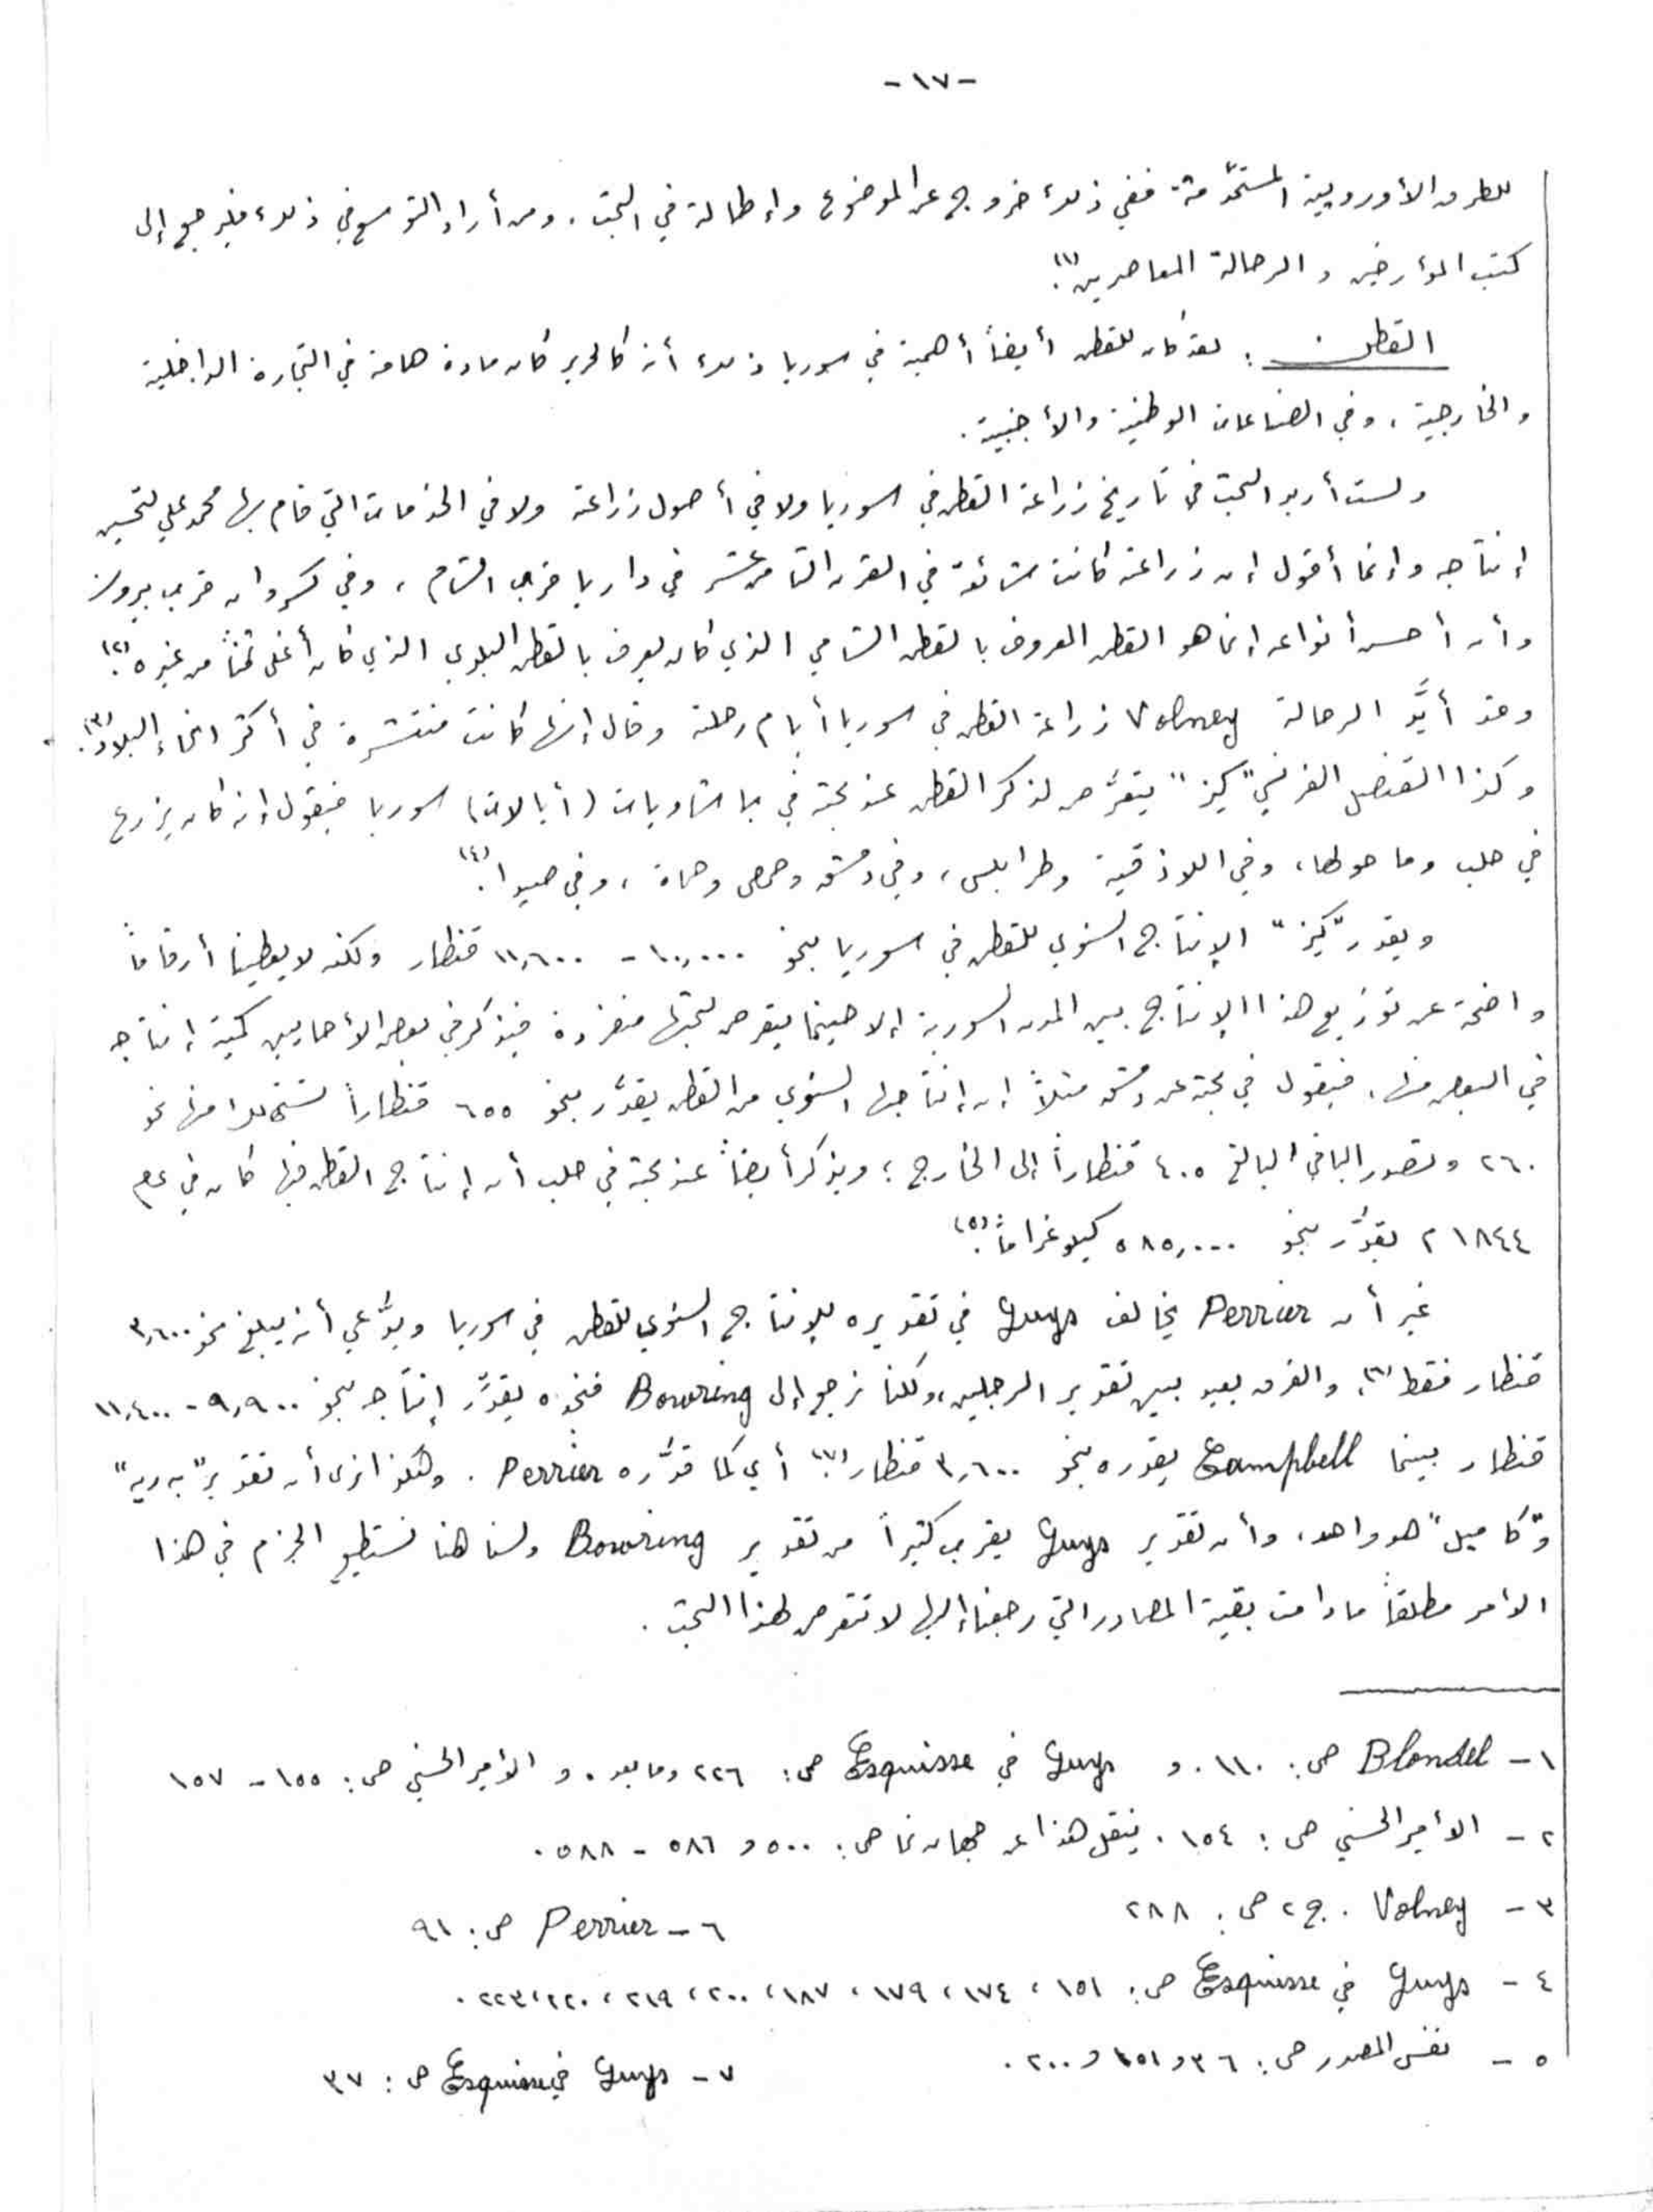 -١٧-
للطرق الأوروبية المستحدثة ففي ذلك خروج عن الموضوع وإطالة في البحث. ومن أراد التوسع في ذلك فليرجع إلى
كتب المؤرخين والرحالة المعاصرين(١).
القطن : لقد كان للقطن أيضاً أهمية في سوريا ذلك أنه كالحرير كان مادة هامة في التجارة الداخلية
والخارجية، وفي الصناعات الوطنية والأجنبية.
ولست أريد البحث في تاريخ زراعة القطن في سوريا ولا في أصول زراعته ولا في الخدمات التي قام بها محمد علي لتحسين
إنتاجه وإنما أقول إن زراعته كانت شائعة في القرن الثامن عشر في داريا قرب الشام، وفي كسروان قرب بيروت
وأن أحسن أنواعه إنما هو القطن المعروف بالقطن الشامي الذي كان يعرف بالقطن البلدي الذي كان أغلى ثمناً من غيره(٢).
وقد أيَّد الرحالة Volney زراعة القطن في سوريا أيام رحلته وقال إنها كانت منتشرة في أكثر انحاء البلاد(٣).
وكذا القنصل الفرنسي "كيز" يتعرَّض لذكر القطن عند بحثه في باشاويات (أيالات) سوريا فيقول إنه كان يزرع
في حلب وما حولها، وفي اللاذقية وطرابلس، وفي دمشق وحمص وحماة، وفي صيدا(٤).
ويقدر "كيز" الإنتاج السنوي للقطن في سوريا بنحو ١٠,٠٠٠ - ١١,٦٠٠ قنطار ولكنه لا يعطينا أرقاماً
واضحة عن توزيع هذا الإنتاج بين المدن السورية إلا حينما يتعرض لبحثها منفردة فيذكر في بعض الأحايين كمية إنتاجه
في البعض منها. فيقول في بحثه عن دمشق مثلاً إن إنتاجها السنوي من القطن يقدَّر بنحو ٦٥٥ قنطاراً تستهلك منها نحو
٢٦٠ وتصدر الباقي البالغ ٤٠٥ قنطاراً إلى الخارج؛ ويذكر أيضاً عند بحثه في حلب أن إنتاج القطن فيها كان في عام
١٨٤٤ م يقدَّر بنحو ٥٨٥,٠٠٠ كيلوغراماً(٥).
غير أن Perrier يخالف Guys في تقديره للإنتاج السنوي للقطن في سوريا ويدَّعي أنه يبلغ نحو ٣,٦٠٠
قنطار فقط(٦). والفرق بعيد بين تقدير الرجلين، ولكنا نرجع إلى Bowring فنجده يقدَّر إنتاجه بنحو ٩,٩٠٠ - ١١,٤٠٠
قنطار بينما Campbell يقدره بنحو ٣,٦٠٠ قنطار(٧) أي كما قدَّره Perrier. وهكذا نرى أن تقدير "به ريه"
و"كامبل" هو واحد، وأن تقدير Guys يقرب كثيراً من تقدير Bowring ولسنا هنا نستطيع الجزم في هذا
الأمر مطلقاً ما دامت بقية المصادر التي رجعنا إليها لا تتعرض لهذا البحث.
١ - Blondel ص: ١١٠. و Guys في Esquisse ص: ٢٢٦ وما بعد. و الأمير الحسني ص: ١٥٥ - ١٥٧
٢ - الأمير الحسني ص: ١٥٤. ينقل هذا عن جهان نما ص: ٥٠٠ و ٥٨٦ - ٥٨٨.
٣ - Volney. ج ٢ ص: ٢٨٨
٦ - Perrier ص: ٩١
٤ - Guys في Esquisse ص: ١٥١، ١٧٤، ١٧٩، ١٨٧، ٢٠٠، ٢١٩، ٢٢٠، ٢٢٣.
٥ - نفس المصدر ص: ٣٦ و ١٥١ و ٢٠٠.
٧ - Guys في Esquisse ص: ٣٧